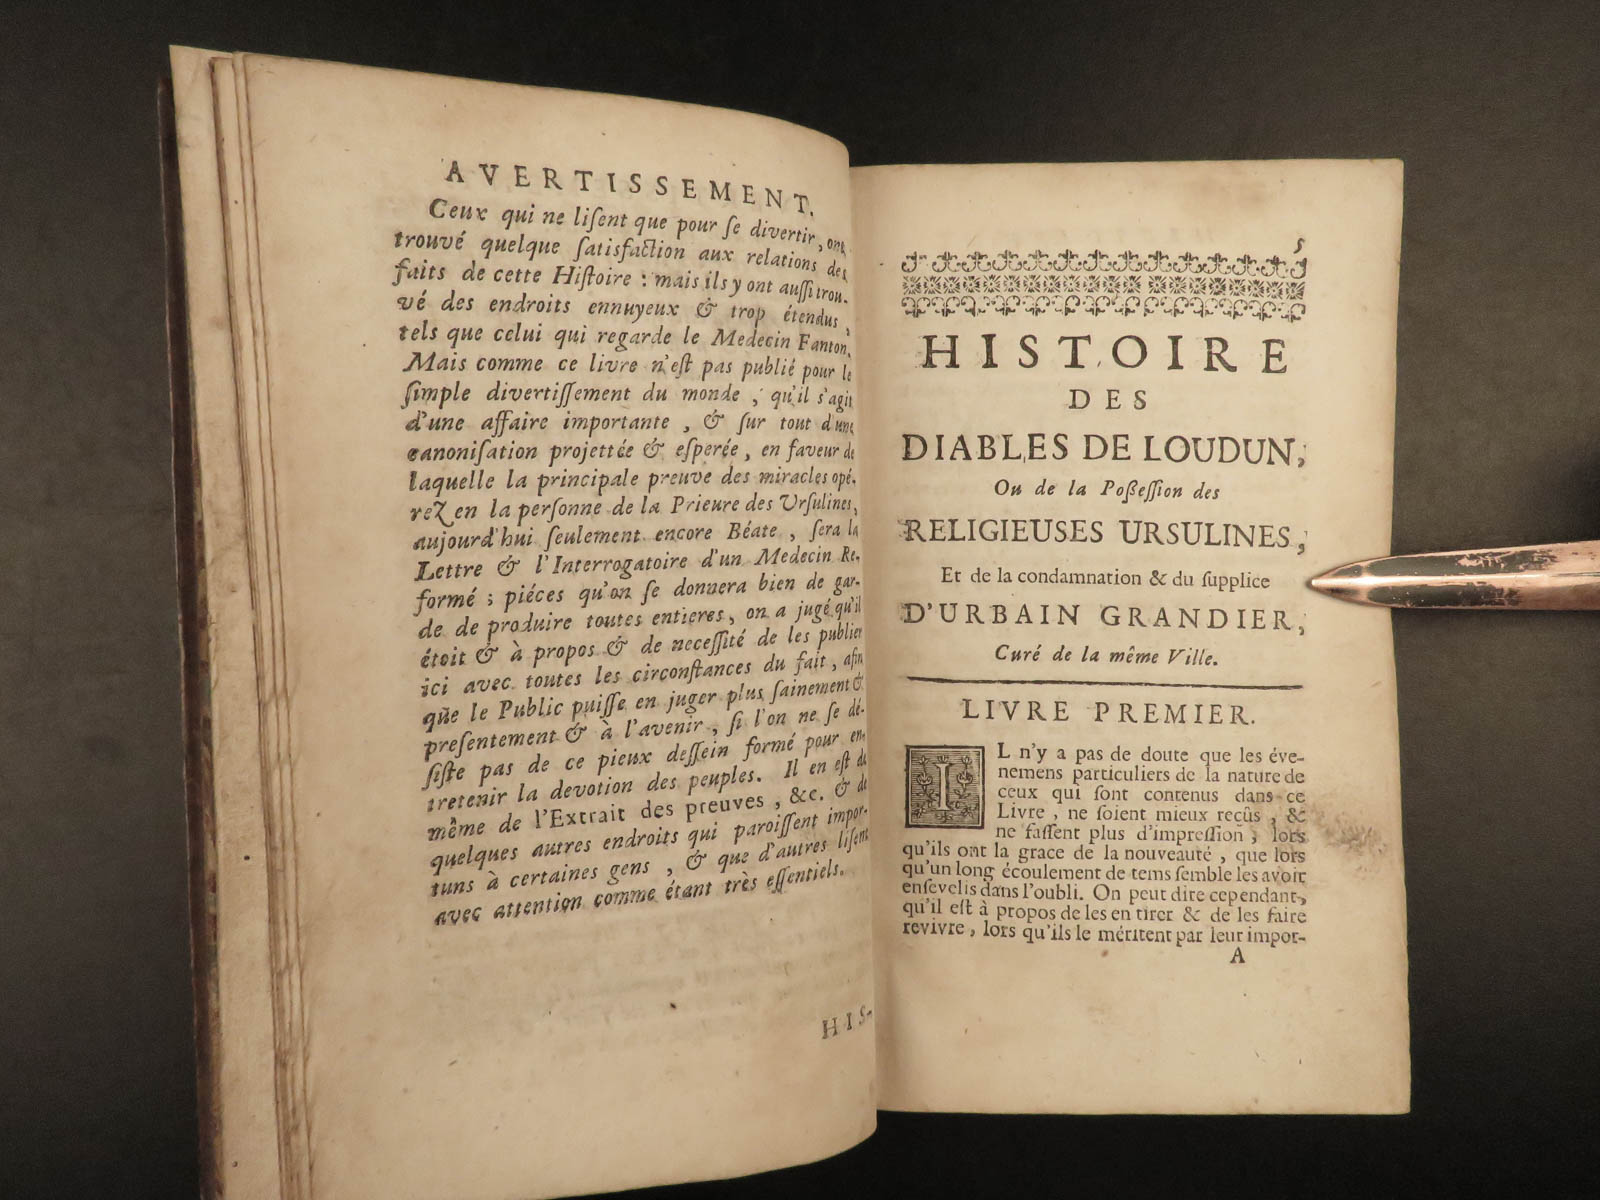 AVERTISSEMENT.
Ceux qui ne liſent que pour ſe divertir, ont
trouvé quelque ſatisfaction aux relations des
faits de cette Hiſtoire : mais ils y ont auſſi trou-
vé des endroits ennuyeux & trop étendus,
tels que celui qui regarde le Medecin Fanton.
Mais comme ce livre n'eſt pas publié pour le
ſimple divertiſſement du monde ; qu'il s'agit
d'une affaire importante, & ſur tout d'une
canoniſation projettée & eſperée, en faveur de
laquelle la principale preuve des miracles opé-
rez en la perſonne de la Prieure des Urſulines,
aujourd'hui ſeulement encore Béate, ſera la
Lettre & l'Interrogatoire d'un Medecin Re-
formé ; piéces qu'on ſe donnera bien de gar-
de de produire toutes entieres, on a jugé qu'il
étoit & à propos & de neceſſité de les publier
ici avec toutes les circonſtances du fait, afin
que le Public puiſſe en juger plus ſainement &
preſentement & à l'avenir, ſi l'on ne ſe dé-
ſiſte pas de ce pieux deſſein formé pour en-
tretenir la devotion des peuples. Il en eſt de
même de l'Extrait des preuves, &c. & de
quelques autres endroits qui paroiſſent impor-
tuns à certaines gens, & que d'autres liſent
avec attention comme étant très eſſentiels.
HIS-
5
HISTOIRE
DES
DIABLES DE LOUDUN,
Ou de la Poßeſſion des
RELIGIEUSES URSULINES,
Et de la condamnation & du ſupplice
D'URBAIN GRANDIER,
Curé de la même Ville.
LIVRE PREMIER.
IL n'y a pas de doute que les éve-
nemens particuliers de la nature de
ceux qui ſont contenus dans ce
Livre, ne ſoient mieux reçûs, &
ne faſſent plus d'impreſſion, lors
qu'ils ont la grace de la nouveauté, que lors
qu'un long écoulement de tems ſemble les avoir
enſevelis dans l'oubli. On peut dire cependant,
qu'il eſt à propos de les en tirer & de les faire
revivre, lors qu'ils le méritent par leur impor-
A